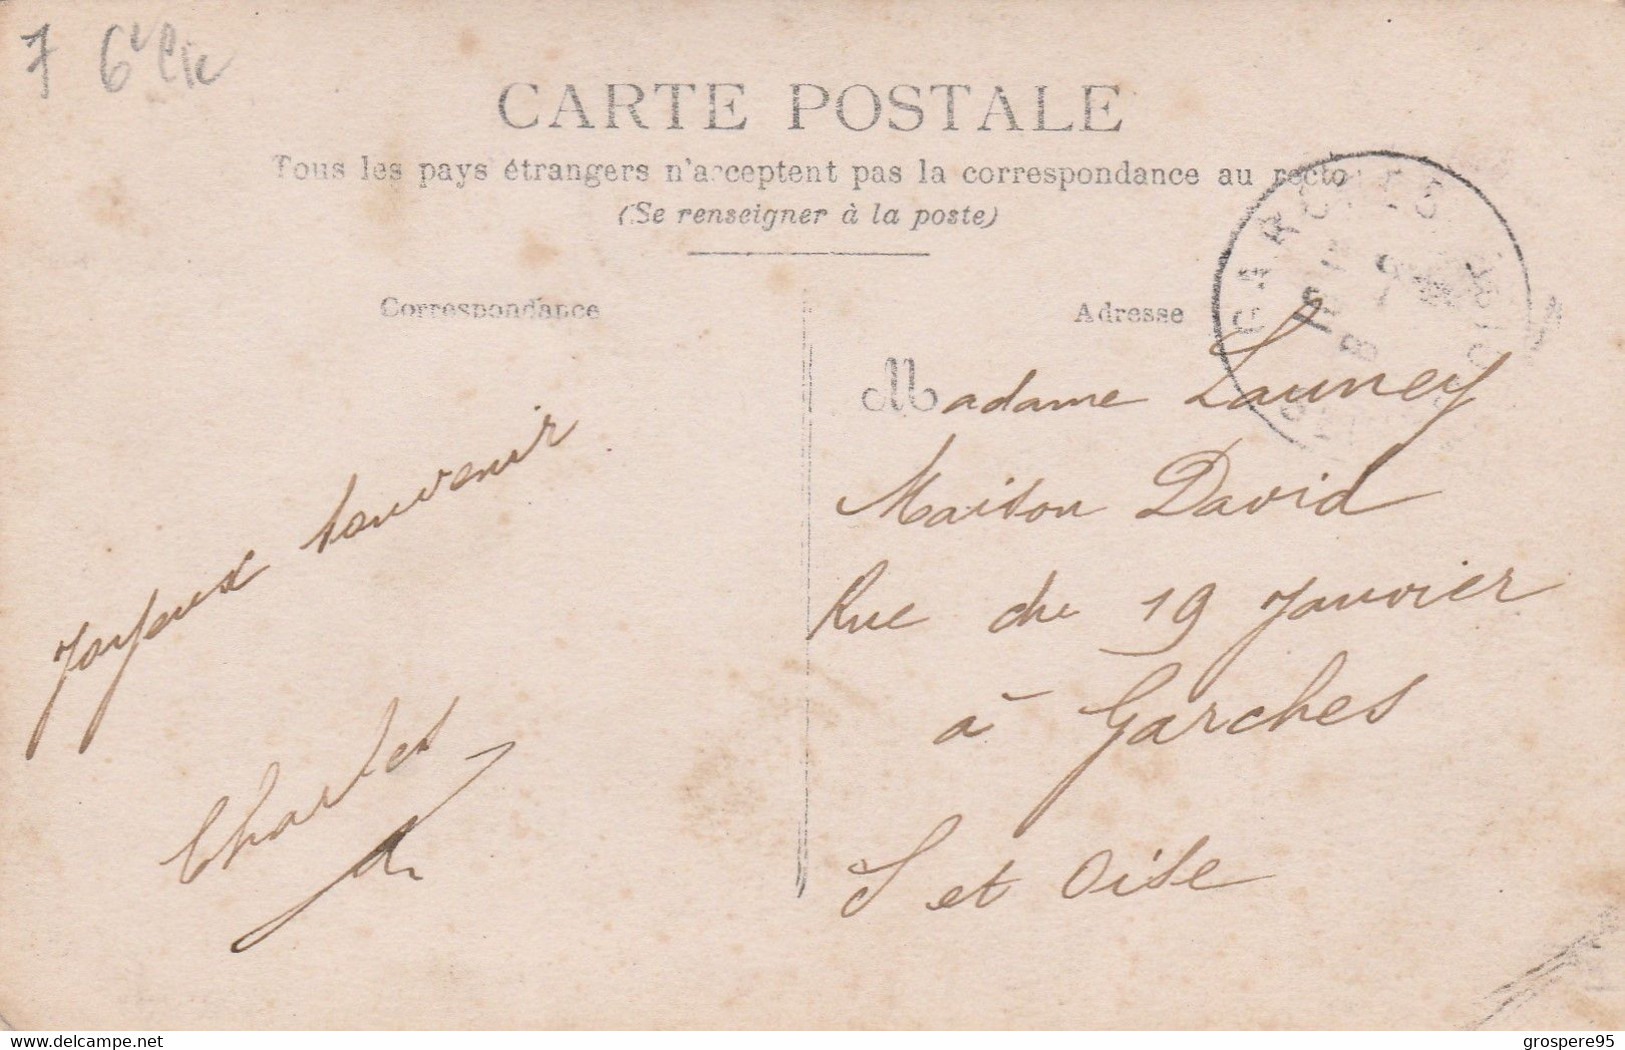 7 6
CARTE POSTALE
Tous les pays étrangers n'acceptent pas la correspondance au recto
(Se renseigner à la poste)
Correspondance
Joyeux souvenir
Charles
Adresse
GARCHES
Madame Launey
Maison David
Rue du 19 Janvier
à Garches
S et Oise
www.delcampe.net
grospere95